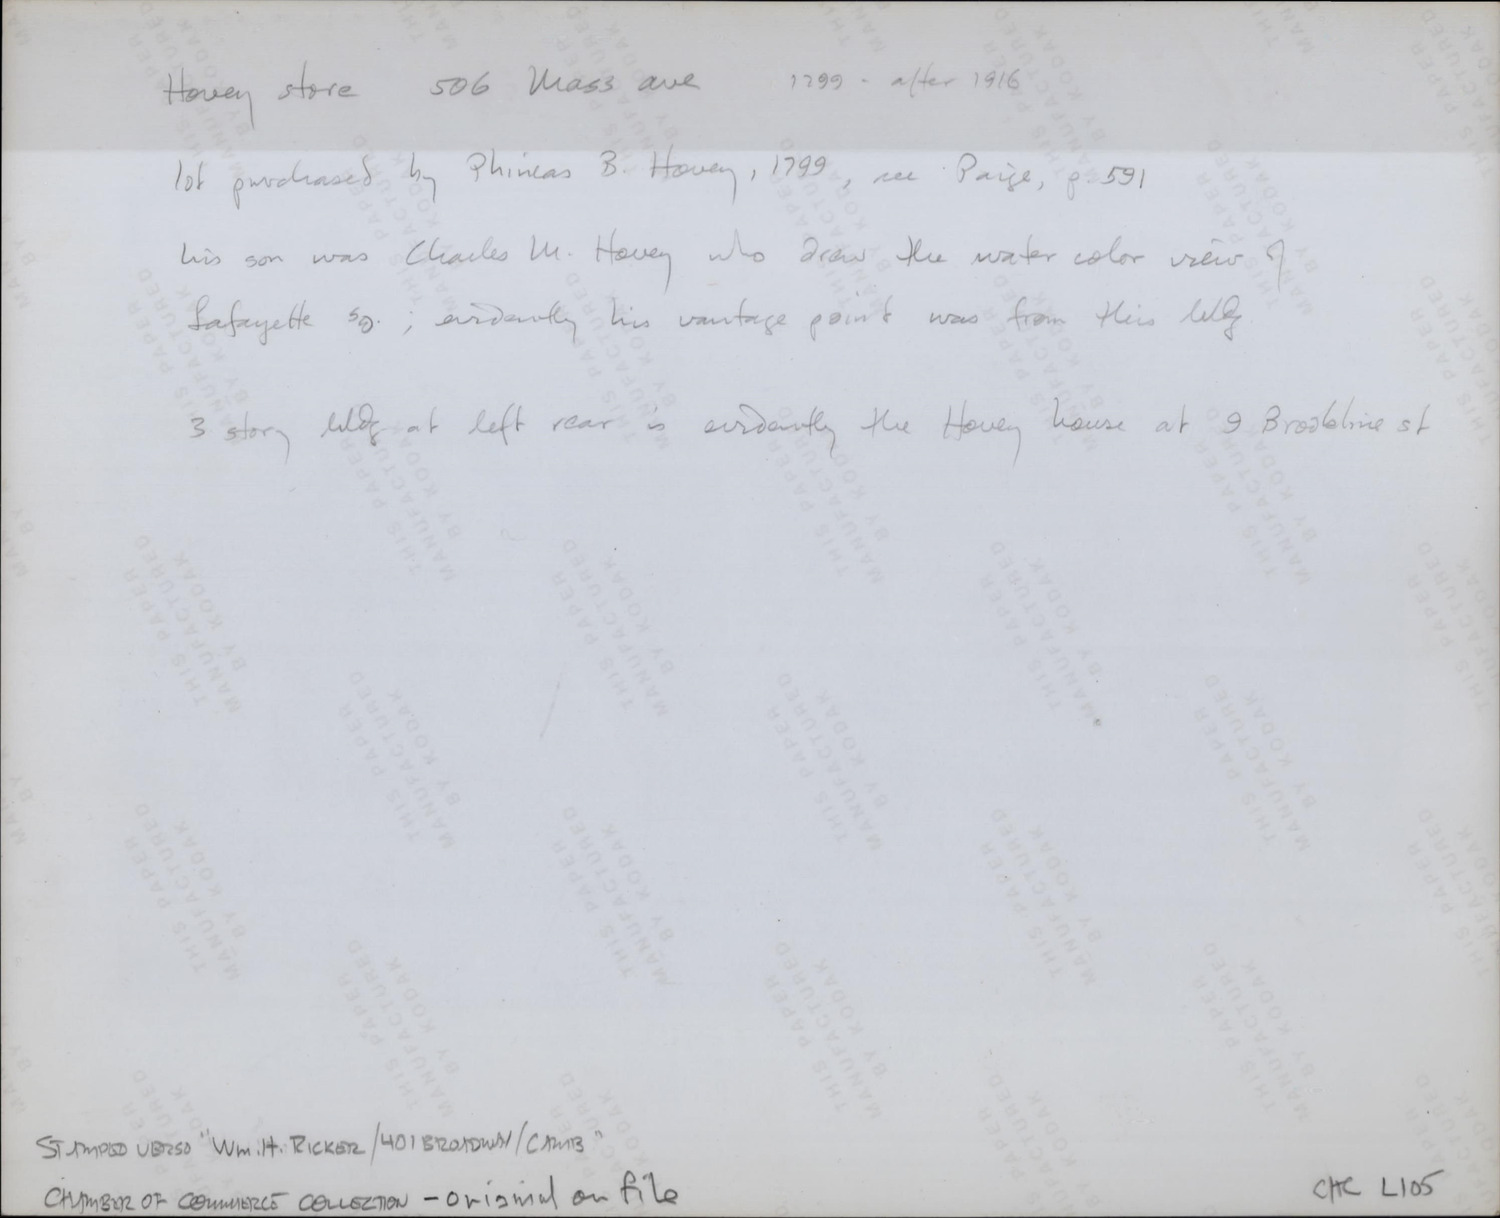 Hovey store 506 Mass ave 1799 - after 1916
lot purchased by Phineas B. Hovey, 1799, see Paige, p. 591
his son was Charles M. Hovey who drew the water color view of
Lafayette sq. ; evidently his vantage point was from this bldg
3 story bldg at left rear is evidently the Hovey house at 9 Brookline st
STAMPED VERSO "Wm. H. RICKER / 401 BROADWAY / CAMB"
CHAMBER OF COMMERCE COLLECTION - original on file
CHC L105
THIS PAPER
MANUFACTURED
BY KODAK